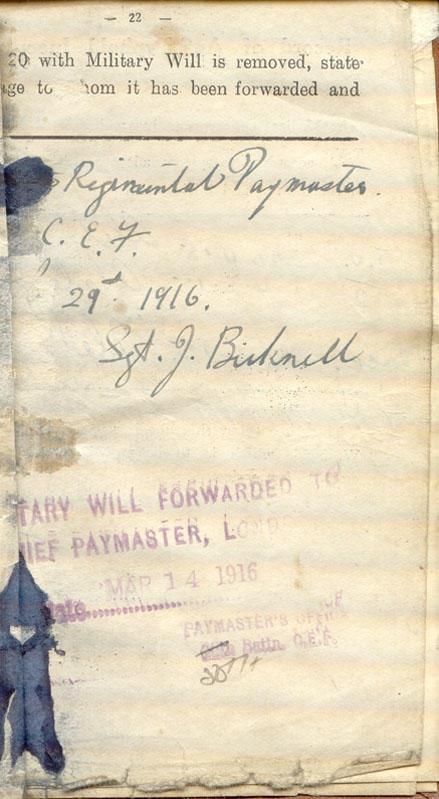 — 22 —
20 with Military Will is removed, state
to whom it has been forwarded and
Regimental Paymaster.
C. E. F.
29th 1916.
Sgt. J. Bicknell
TARY WILL FORWARDED TO
IEF PAYMASTER, LOND
MAR 14 1916
PAYMASTER'S OFFICE
Battn. C.E.F.